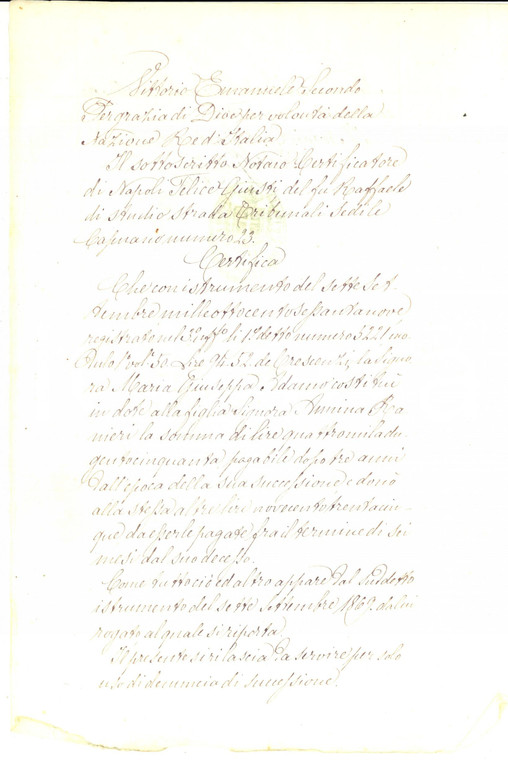 Vittorio Emanuele Secondo
Per grazia di Dio e per volontà della
Nazione Re d'Italia
Il sottoscritto Notaio Certificatore
di Napoli Felice Giusti del fu Raffaele
di studio strada Tribunali Sedile
Capuano numero 23.
Certifica
Che con istrumento del sette Set-
tembre milleottocentosessantanove
registrato nel 3° uff° li 1° detto numero 3221 mo
Lire 94.32. de Crescenzi, la Signo
ra Maria Giuseppa Adamo costituì
in dote alla figlia Signora Annina Ra
nieri la somma di lire quattromiladu-
gentocinquanta pagabili dopo tre anni
dall'epoca della sua successione e donò
alla stessa altre lire novecentotrentacin-
que da esserle pagate fra il termine di sei
mesi dal suo decesso.
Come tutto ciò ed altro appare dal suddetto
istrumento del sette Settembre 1869. da lui
rogato al quale si riporta
Il presente si rilascia da servire per solo
uso di denuncia di successione.